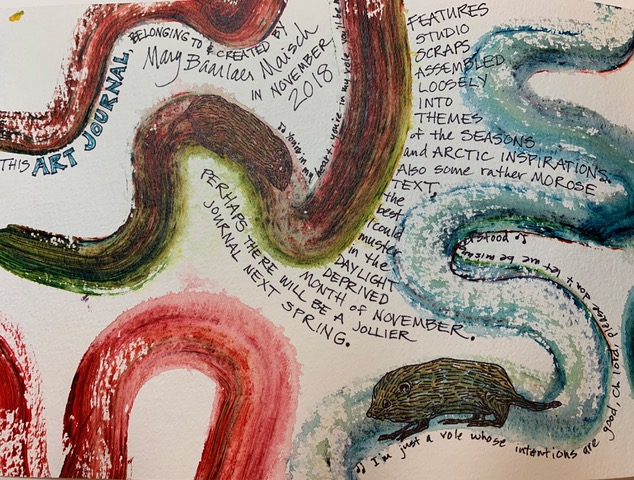 THIS ART JOURNAL,
BELONGING TO & CREATED BY
Mary Baarlaer Maisch
IN NOVEMBER,
2018
FEATURES
STUDIO
SCRAPS
ASSEMBLED
LOOSELY
INTO
THEMES
of the SEASONS
and ARCTIC INSPIRATIONS.
Also some rather MOROSE
TEXT,
the
best
I could
muster
in the
DAYLIGHT
DEPRIVED
MONTH of NOVEMBER.
PERHAPS THERE WILL BE A JOLLIER
JOURNAL NEXT SPRING.
♫ You're in my heart, you're in my vole
♫ I'm just a vole whose intentions are good, oh lord please don't let me be misunderstood ♫